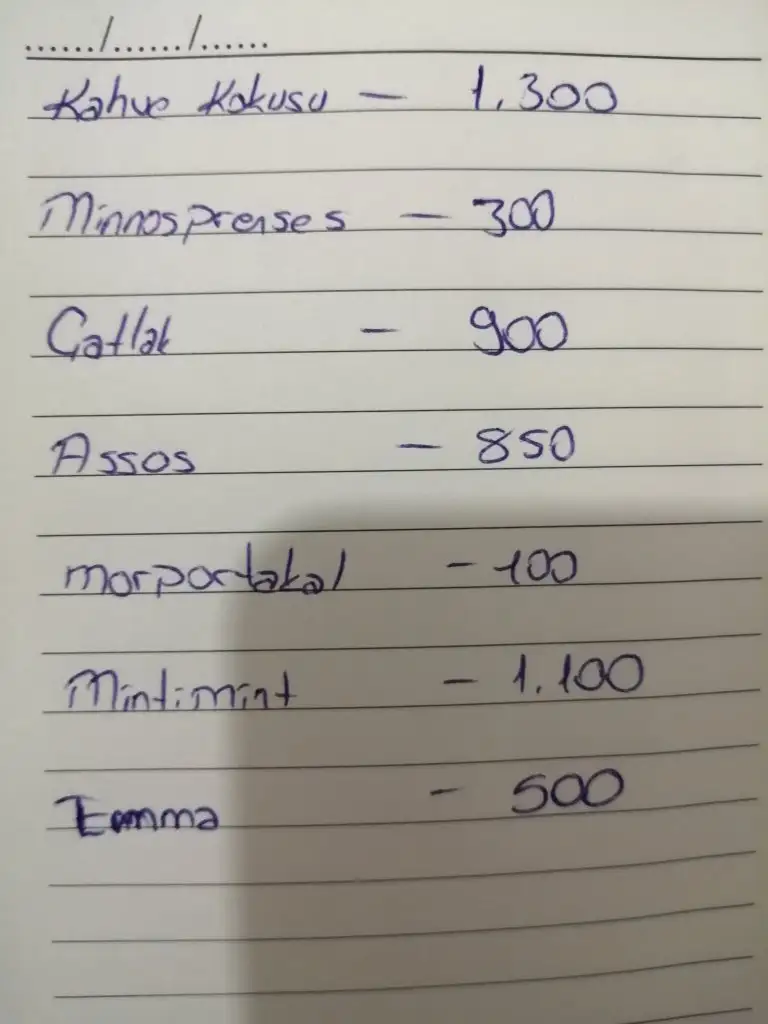 ....../....../......
Kahve Kokusu — 1.300
Minnosprenses — 300
Çatlak — 900
Assos — 850
morportakal - 100
Mintimint - 1.100
Emma - 500